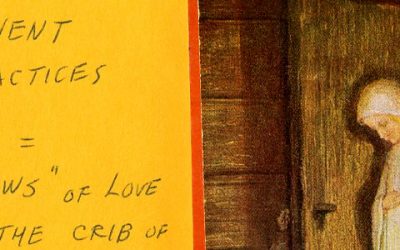 VENT
ACTICES
=
WS" OF LOVE
THE CRIB OF